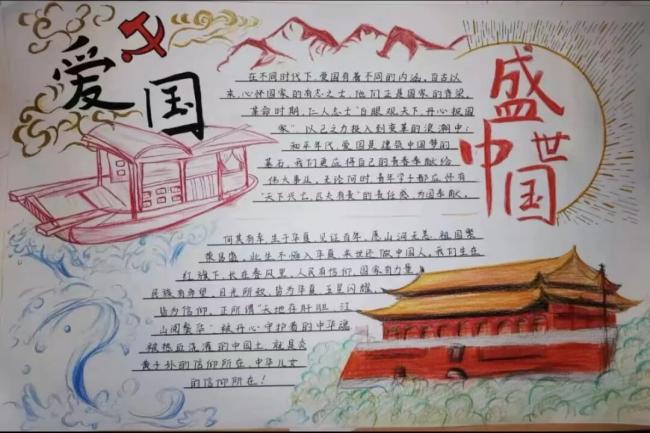 爱国
盛世
中国
在不同时代下,爱国有着不同的内涵,自古以
来,心怀国家的有志之士,他们正是国家的脊梁。
革命时期,仁人志士"白眼观天下,丹心报国
家",以己之力投入到变革的浪潮中;
和平年代,爱国是建筑中国梦的
基石,我们更应将自己的青春奉献给
伟大事业,无论何时,青年学子都应怀有
"天下兴亡,匹夫有责"的责任感,为国奉献。
何其有幸,生于华夏,见证百年,愿山河无恙,祖国繁
荣昌盛,此生不悔入华夏,来世还做中国人,我们生在
红旗下,长在春风里,人民有信仰,国家有力量,
民族有希望,目光所致,皆为华夏,五星闪耀,
皆为信仰,正所谓"天地存肝胆,江
山阅鬓华",被丹心守护着的中华魂,
被热血浇洒的中国土,就是炎
黄子孙的信仰所在,中华儿女
的信仰所在!